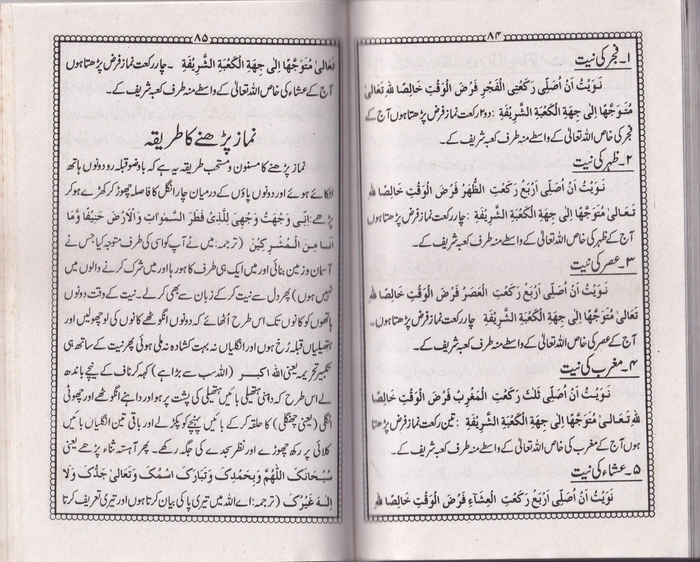 ۸۴
۱۔ فجر کی نیت
نَوَیْتُ اَنْ اُصَلِّیَ رَکْعَتَیِ الْفَجْرِ فَرْضَ الْوَقْتِ خَالِصًا لِلّٰہِ تَعَالیٰ
مُتَوَجِّھًا اِلیٰ جِھَۃِ الْکَعْبَۃِ الشَّرِیْفَۃِ : دو۲ رکعت نماز فرض پڑھتا ہوں آج کے
فجر کی خاص اللہ تعالیٰ کے واسطے منہ طرف کعبہ شریف کے۔
۲۔ ظہر کی نیت
نَوَیْتُ اَنْ اُصَلِّیَ اَرْبَعَ رَکَعَتِ الظُّھْرِ فَرْضَ الْوَقْتِ خَالِصًا لِلّٰہِ
تَعَالیٰ مُتَوَجِّھًا اِلیٰ جِھَۃِ الْکَعْبَۃِ الشَّرِیْفَۃِ : چار رکعت نماز فرض پڑھتا ہوں
آج کے ظہر کی خاص اللہ تعالیٰ کے واسطے منہ طرف کعبہ شریف کے۔
۳۔ عصر کی نیت
نَوَیْتُ اَنْ اُصَلِّیَ اَرْبَعَ رَکَعَتِ الْعَصْرِ فَرْضَ الْوَقْتِ خَالِصًا لِلّٰہِ
تَعَالیٰ مُتَوَجِّھًا اِلیٰ جِھَۃِ الْکَعْبَۃِ الشَّرِیْفَۃِ چار رکعت نماز فرض پڑھتا ہوں۔
آج کے عصر کی خاص اللہ تعالیٰ کے واسطے منہ طرف کعبہ شریف کے۔
۴۔ مغرب کی نیت
نَوَیْتُ اَنْ اُصَلِّیَ ثَلٰثَ رَکَعَتِ الْمَغْرِبِ فَرْضَ الْوَقْتِ خَالِصًا
لِلّٰہِ تَعَالیٰ مُتَوَجِّھًا اِلیٰ جِھَۃِ الْکَعْبَۃِ الشَّرِیْفَۃِ : تین رکعت نماز فرض پڑھتا
ہوں آج کے مغرب کی خاص اللہ تعالیٰ کے واسطے منہ طرف کعبہ شریف کے۔
۵۔ عشاء کی نیت
نَوَیْتُ اَنْ اُصَلِّیَ اَرْبَعَ رَکَعَتِ الْعِشَآءِ فَرْضَ الْوَقْتِ خَالِصًا لِلّٰہِ
۸۵
تَعَالیٰ مُتَوَجِّھًا اِلیٰ جِھَۃِ الْکَعْبَۃِ الشَّرِیْفَۃِ ۔ چار رکعت نماز فرض پڑھتا ہوں
آج کے عشاء کی خاص اللہ تعالیٰ کے واسطے منہ طرف کعبہ شریف کے۔
نماز پڑھنے کا طریقہ
نماز پڑھنے کا مسنون و مستحب طریقہ یہ ہے کہ باوضو قبلہ رو دونوں ہاتھ
لٹکائے ہوئے اور دونوں پاؤں کے درمیان چار انگل کا فاصلہ چھوڑ کر کھڑے ہو کر
پڑھے: اِنِّی وَجَّھْتُ وَجْھِیَ لِلَّذِیْ فَطَرَ السَّمٰوٰاتِ وَالْاَرْضَ حَنِیْفًا وَّمَا
اَنَا مِنَ الْمُشْرِکِیْنَ (ترجمہ: میں نے آپ کو اسی کی طرف متوجہ کیا جس نے
آسمان و زمین بنائی اور میں ایک ہی طرف کا ہو رہا اور میں شرک کرنے والوں میں
نہیں ہوں) پھر دل سے نیت کر کے زبان سے بھی کرلے۔ نیت کے وقت دونوں
ہاتھوں کو کانوں تک اس طرح اُٹھائے کہ دونوں انگوٹھے کانوں کی لو چھولیں اور
ہتھیلیاں قبلہ رُخ ہوں اور انگلیاں نہ بہت کشادہ نہ ملی ہوئی پھر نیت کے ساتھ ہی
تکبیر تحریمہ یعنی اللہ اکبر (اللہ سب سے بڑا ہے) کہہ کر ناف کے نیچے باندھ
لے اس طرح کہ داہنی ہتھیلی بائیں ہتھیلی کی پشت پر ہو اور داہنے انگوٹھے اور چھوٹی
انگلی (یعنی چھنگلی) کا حلقہ کر کے بائیں پہنچے کو پکڑ لے اور باقی تین انگلیاں بائیں
کلائی پر رکھ چھوڑے اور نظر سجدے کی جگہ رکھے۔ پھر آہستہ ثناء پڑھے یعنی
سُبْحَانَکَ اللّٰھُمَّ وَبِحَمْدِکَ وَتَبَارَکَ اسْمُکَ وَتَعَالیٰ جَدُّکَ وَلَا
اِلٰہَ غَیْرُکَ (ترجمہ: اے اللہ میں تیری پاکی بیان کرتا ہوں اور تیری تعریف کرتا